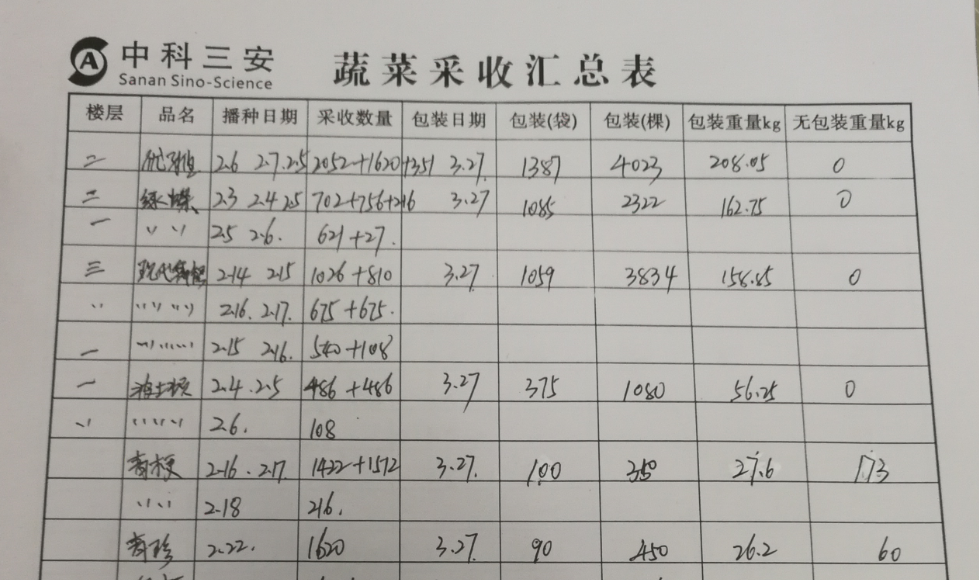 中科三安
Sanan Sino-Science
蔬菜采收汇总表
楼层 品名 播种日期 采收数量 包装日期 包装(袋) 包装(棵) 包装重量kg 无包装重量kg
二 2.6 2.7 2.5 2052+1620+351 3.27. 1387 4023 208.05 0
二 绿蝶 2.3 2.4 2.5 702+756+216 3.27 1085 2322 162.75 0
一 〃 〃 2.5 2.6. 621+27.
三 2.14 2.15 1026+810 3.27. 1059 3834 158.85 0
〃 〃 〃 〃 2.16. 2.17. 675+675.
一 〃 〃 〃 2.15 2.16. 540+108
一 2.4. 2.5 486+486 3.27 375 1080 56.25 0
〃 〃 〃 〃 2.6. 108
青梗 2.16. 2.17. 1422+1512 3.27. 100 350 27.6 173
〃 〃 2.18 216.
青珍 2.22. 1620 3.27. 90 450 26.2 60